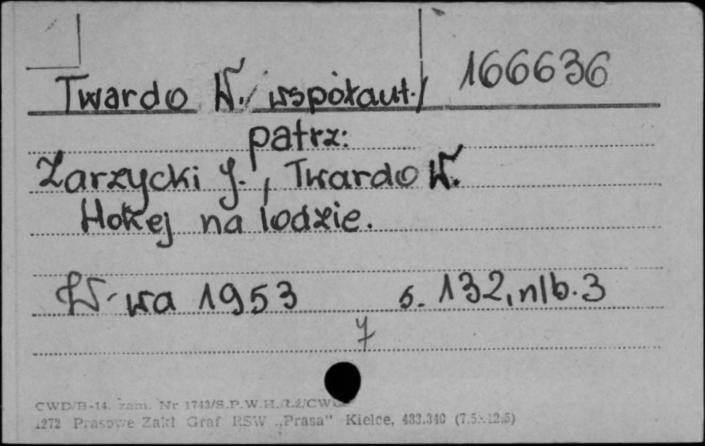 166636
Twardo W. /współaut./
patrz:
Zarzycki J., Twardo W.
Hokej na lodzie.
W-wa 1953 s. 132, nlb. 3
7
CWD/B-14. zam. Nr 1743/S.P.W.H./Łż/CWD
1272 Prasowe Zakł Graf RSW „Prasa” Kielce, 483.340 (7.5×12.5)